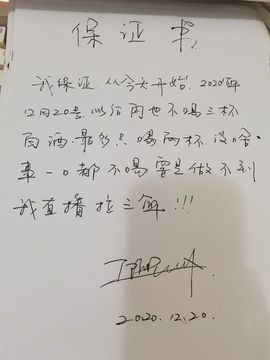 保证书
我保证从今天开始.2020年
12月20号.以后再也不喝三杯
白酒.最多只喝两杯.没啥
事一口都不喝要是做不到
我直播拉三角!!!
2020.12.20.